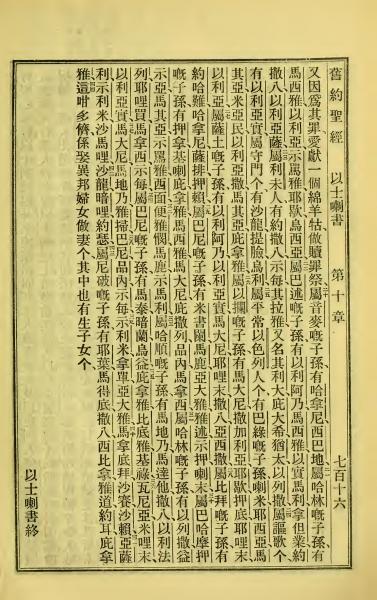 舊約聖經 以士喇書 第十章 七百十六
又因爲其罪愛獻一個綿羊牯做贖罪祭屬音麥嘅子孫有哈拿尼西巴地屬哈林嘅子孫有
馬西雅以利亞示罵雅耶歇烏西亞屬巴述嘅子孫有以利阿乃馬西雅以實馬利拿但業約
撒八以利亞薩屬利未人有約撒八示每其拉雅又名其利大庇大希猶大以列撒屬謳歌个
有以利亞實屬守門个有沙龍提臉烏利屬平常以色列人个有巴綠嘅子孫喇米耶西亞馬
其亞米亞民以利亞撒馬其亞庇拿雅屬以攔嘅子孫有馬大尼撒加利亞耶歇押底耶利末
以利亞屬薩土嘅子孫有以利阿乃以利亞實馬大尼耶哩末撒八亞西撒屬比拜嘅子孫有
約哈難哈拿尼薩排押賴屬巴尼嘅子孫有米書闌馬鹿亞大雅雅述示押喇末屬巴哈摩押
嘅子孫有押拿基喇庇拿雅馬西雅馬大尼庇撒列品內馬拿西屬哈林嘅子孫有以列撒益
示亞馬其亞示罵雅西面便雅憫馬鹿示馬利屬哈順嘅子孫有馬地乃馬達他撒八以利法
列耶哩買馬拿西示每屬巴尼嘅子孫有馬泰暗蘭烏益庇拿雅比底雅基祿瓦尼亞米哩末
以利亞實馬大尼馬地乃雅掃巴尼品內示每示利米拿單亞大雅馬拿底拜沙賽沙賴亞薩
利示利米沙馬哩沙龍暗哩約瑟屬尼破嘅子孫有耶葉馬得底撒八西比拿雅道約耳庇拿
雅這咁多儕係娶異邦婦女做妻个其中也有生子女个
以士喇書終